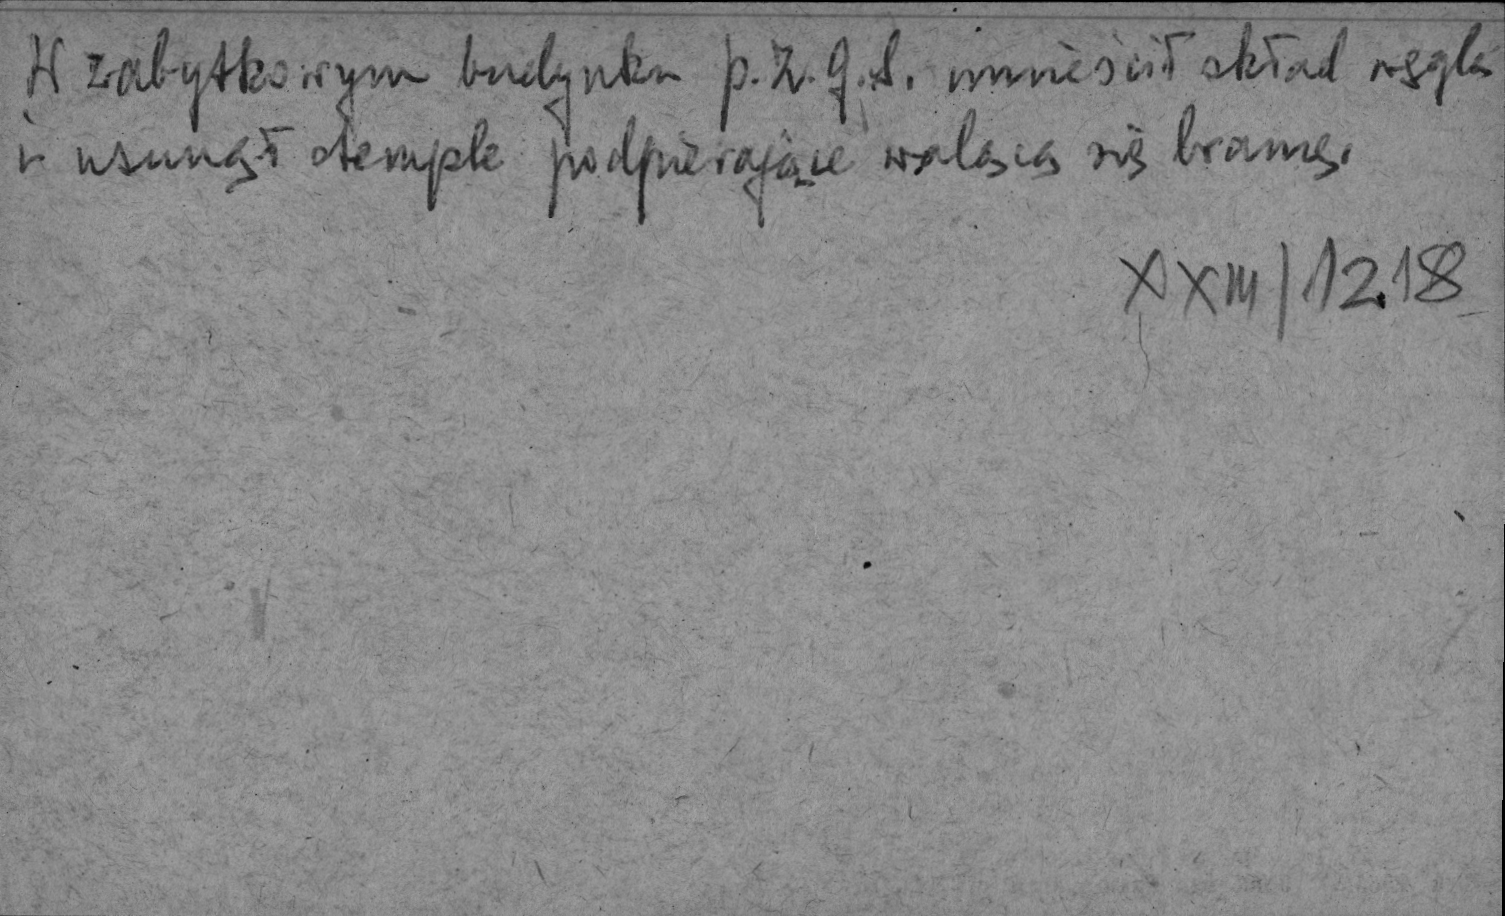 W zabytkowym budynku p.z.g.s. umieścił skład węgla
i usunął stemple podpierające walącą się bramę.
XXIII/1218